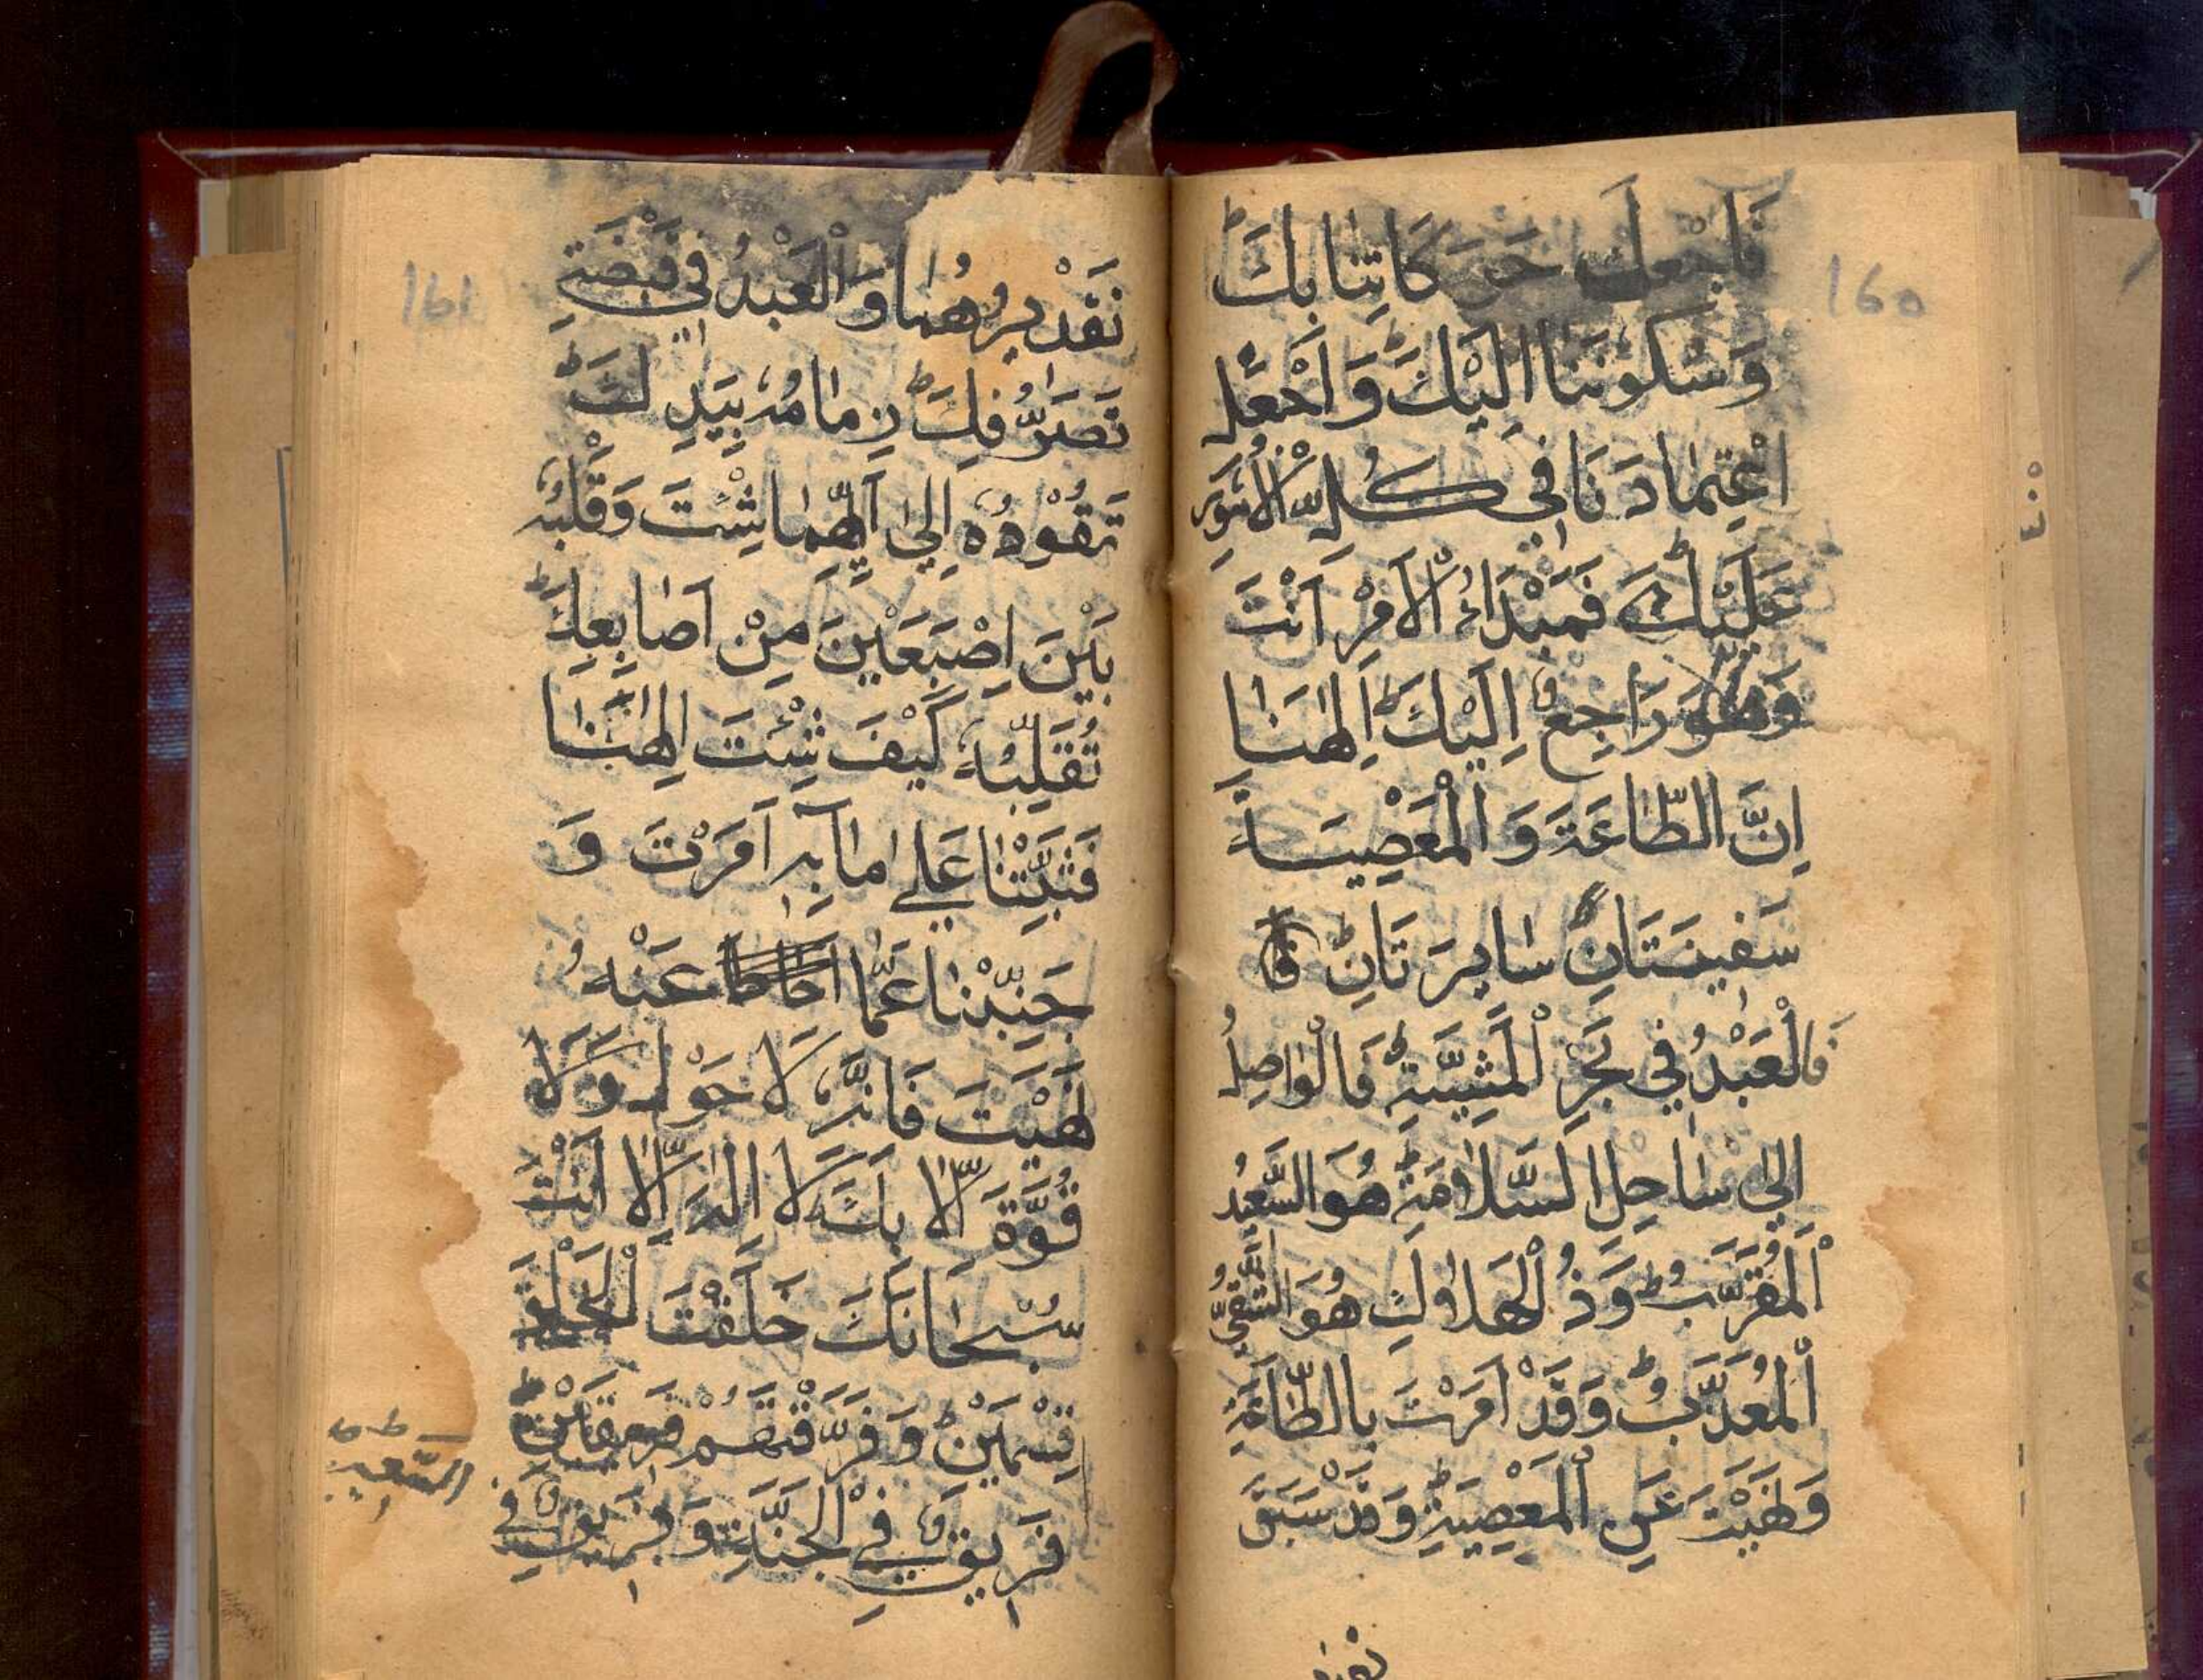 160
فَاجْعَل حَرَكَاتِنَا بِكَ
وَسُكُوْنَنَا اِلَيْكَ وَاجْعَل
اعْتِمَادَنَا فِي كُلِّ الْاُمُوْرِ
عَلَيْكَ فَمَبْدَاءُ الْاَمْرِ اَنْتَ
وَهُوَ رَاجِعٌ اِلَيْكَ اِلٰهَنَا
اِنَّ الطَّاعَةَ وَالْمَعْصِيَةَ
سَفِيْنَتَانِ سَايِرَتَانِ
فَالْعَبْدُ فِي بَحْرِ الْمَشِيَّةِ فَالْوَاصِلُ
اِلٰي سَاحِلِ السَّلَامَةِ هُوَ السَّعِيْدُ
الْمُقَرَّبُ وَذُ الْهَلَاكِ هُوَ الشَّقِيُّ
الْمُعَذَّبُ وَقَدْ اَمَرْتَ بِالطَّاعَةِ
وَنَهَيْتَ عَنِ الْمَعْصِيَةِ وَقَدْ سَبَقَ
161
تَقْدِيْرُهُمَا وَالْعَبْدُ فِي قَبْضَةِ
تَصَرُّفِكَ زِمَامُهُ بِيَدِكَ
تَقُوْدُهُ اِلٰي اَيِّهِمَا شِئْتَ وَقَلْبُهُ
بَيْنَ اِصْبَعَيْنِ مِنْ اَصَابِعِكَ
تُقَلِّبُهُ كَيْفَ شِئْتَ اِلٰهَنَا
فَثَبِّتْنَا عَلٰي مَا بِهِ اَمَرْتَ وَ
جَنِّبْنَا عَمَّا عَنْهُ
نَهَيْتَ فَاِنَّهُ لَا حَوْلَ وَلَا
قُوَّةَ اِلَّا بِكَ لَا اِلٰهَ اِلَّا اَنْتَ
سُبْحَانَكَ خَلَقْتَ الْخَلْقَ
قِسْمَيْنِ وَفَرَّقْتَهُمْ فَرِيْقَيْنِ
فَرِيْقٌ فِي الْجَنَّةِ وَفَرِيْقٌ فِي
السَّعِيْرِ